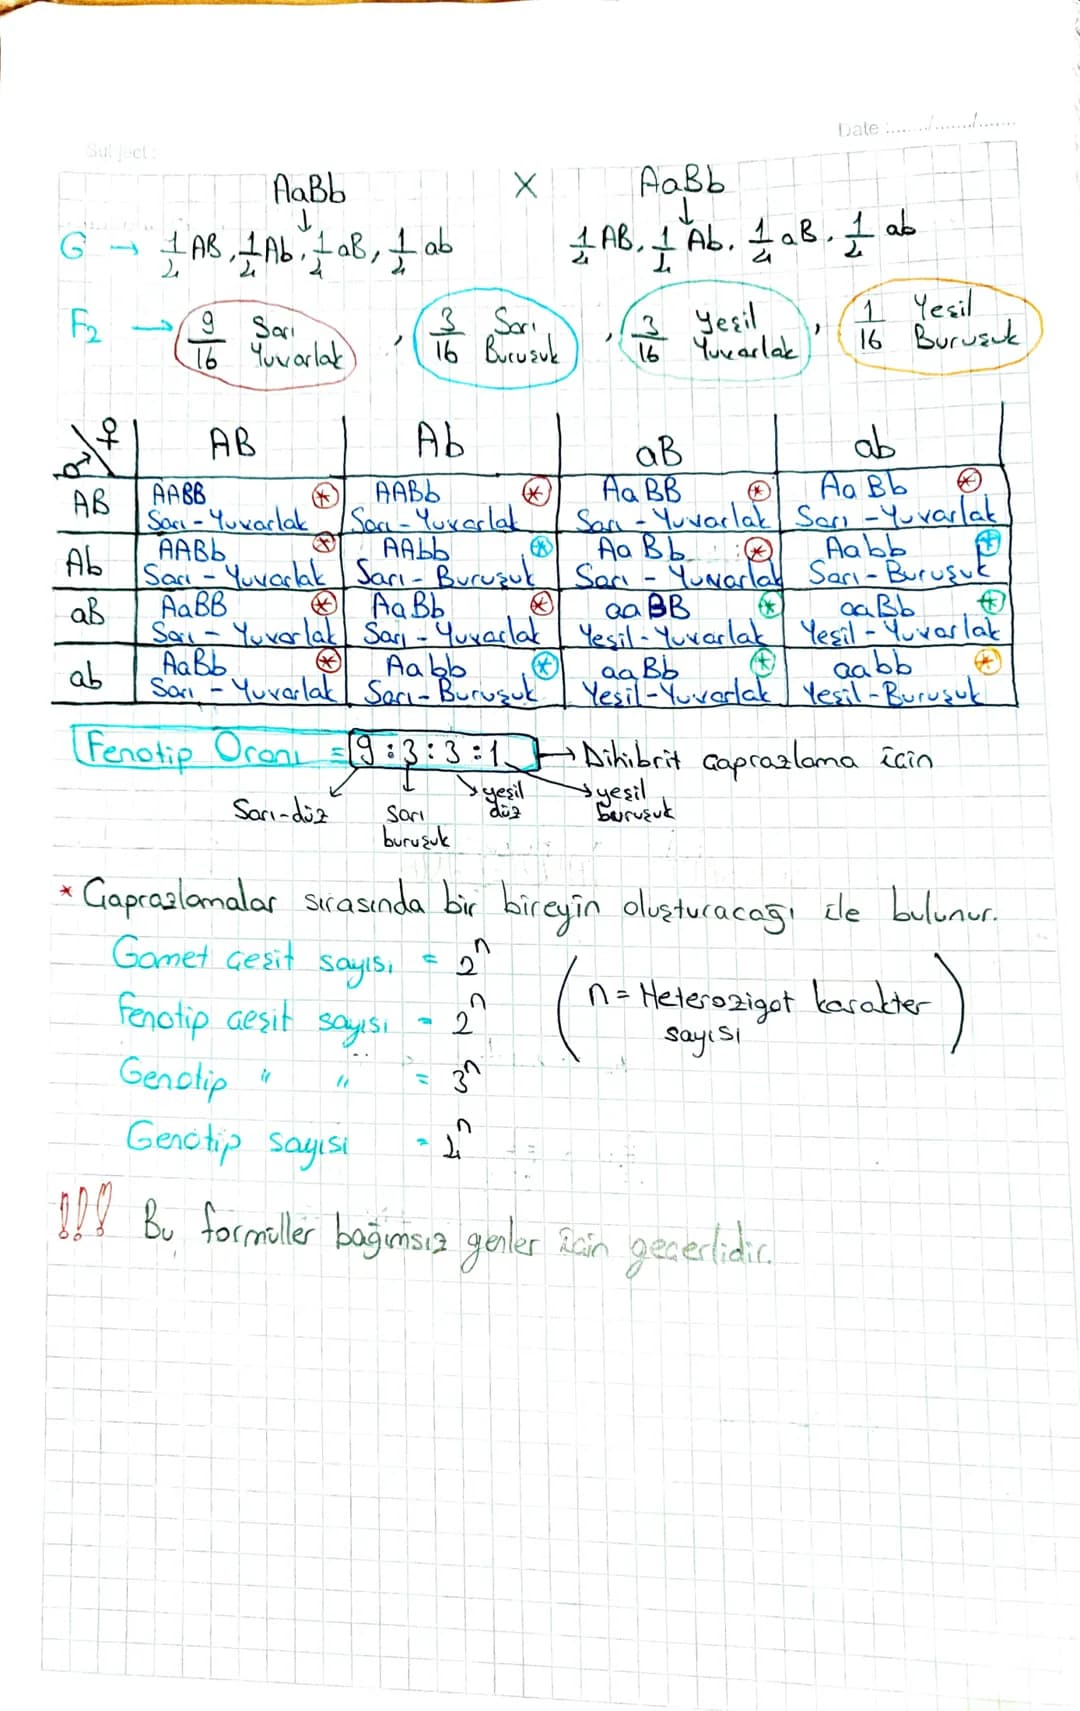 Date :....../......./.......
Subject:
AaBb X AaBb
↓ ↓
G → 1/4 AB, 1/4 Ab, 1/4 aB, 1/4 ab 1/4 AB, 1/4 Ab, 1/4 aB, 1/4 ab
F2 → 9/16 Sarı Yuvarlak, 3/16 Sarı Buruşuk, 3/16 Yeşil Yuvarlak, 1/16 Yeşil Buruşuk
♂ \ ♀ AB Ab aB ab
AB AABB AABb AaBB AaBb
Sarı - Yuvarlak Sarı - Yuvarlak Sarı - Yuvarlak Sarı - Yuvarlak
Ab AABb AAbb AaBb Aabb
Sarı - Yuvarlak Sarı - Buruşuk Sarı - Yuvarlak Sarı - Buruşuk
aB AaBB AaBb aaBB aaBb
Sarı - Yuvarlak Sarı - Yuvarlak Yeşil - Yuvarlak Yeşil - Yuvarlak
ab AaBb Aabb aaBb aabb
Sarı - Yuvarlak Sarı - Buruşuk Yeşil - Yuvarlak Yeşil - Buruşuk
Fenotip Oranı = 9:3:3:1 → Dihibrit çaprazlama için
Sarı-düz sarı buruşuk yeşil düz yeşil buruşuk
* Çaprazlamalar sırasında bir bireyin oluşturacağı ile bulunur.
Gamet çeşit sayısı = 2ⁿ
(n = Heterozigot karakter sayısı)
Fenotip çeşit sayısı = 2ⁿ
Genotip " " = 3ⁿ
Genotip sayısı = 4ⁿ
!!! Bu formüller bağımsız genler için geçerlidir.